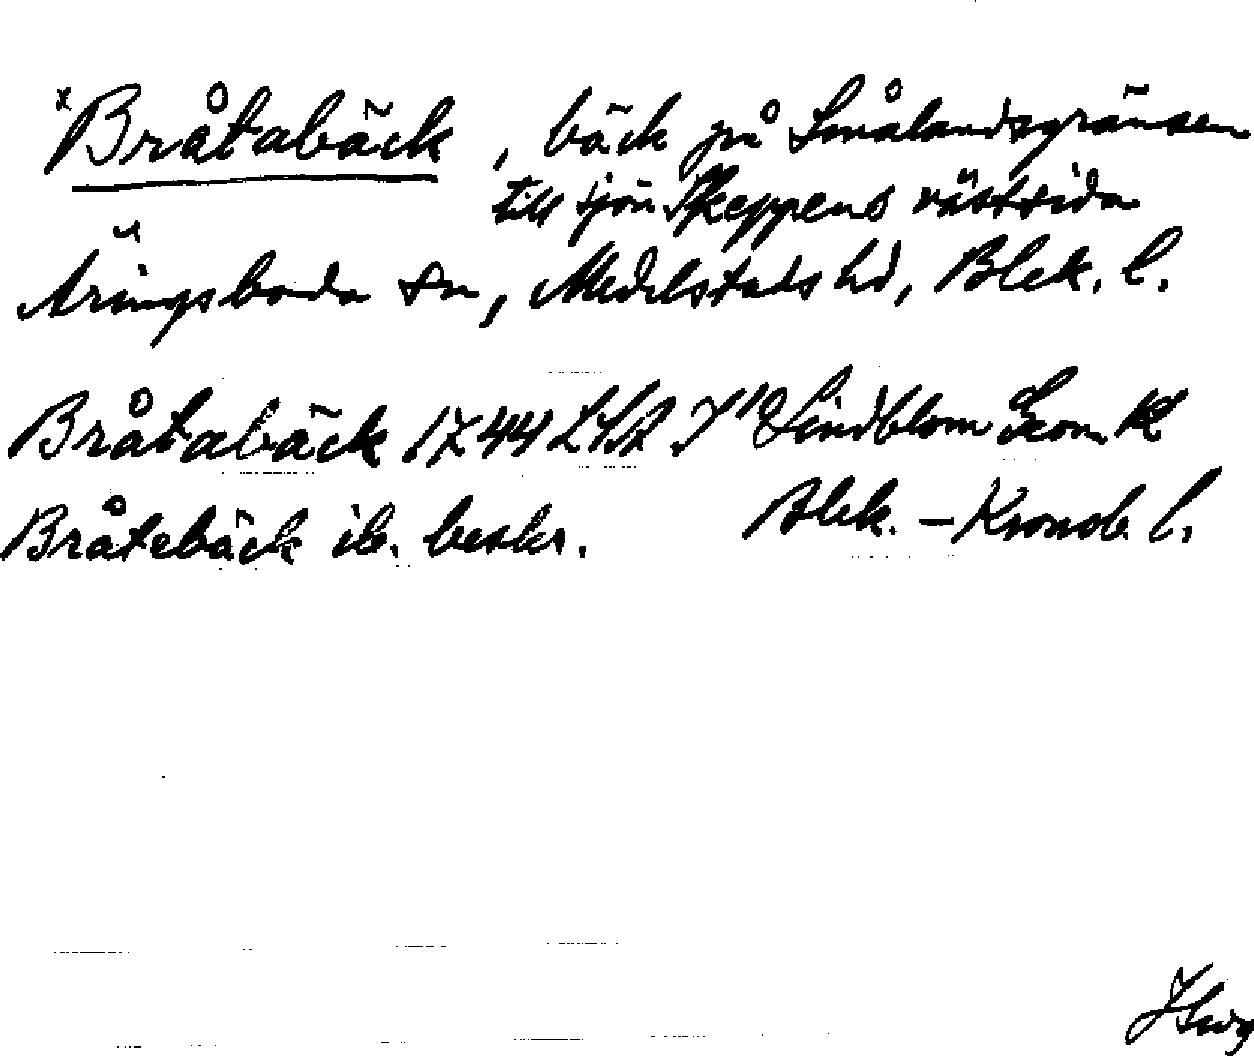 x Bråtabäck, bäck på Smålandsgränsen
till sjön Skeppens västsida
Äringsboda sn, Medelstads hd, Blek. l.
Bråtabäck 1744 LSA Lindblom Geom K
Bråtebäck ib. beskr. Blek. – Kronob. l.